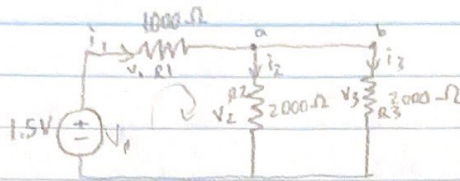 1000Ω
a
b
i1
v1
R1
i2
i3
R2
V2
2000Ω
V3
R3
2000Ω
1.5V